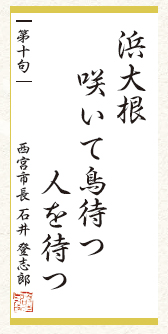 浜大根
咲いて鳥待つ
人を待つ
第十句
西宮市長 石井 登志郎